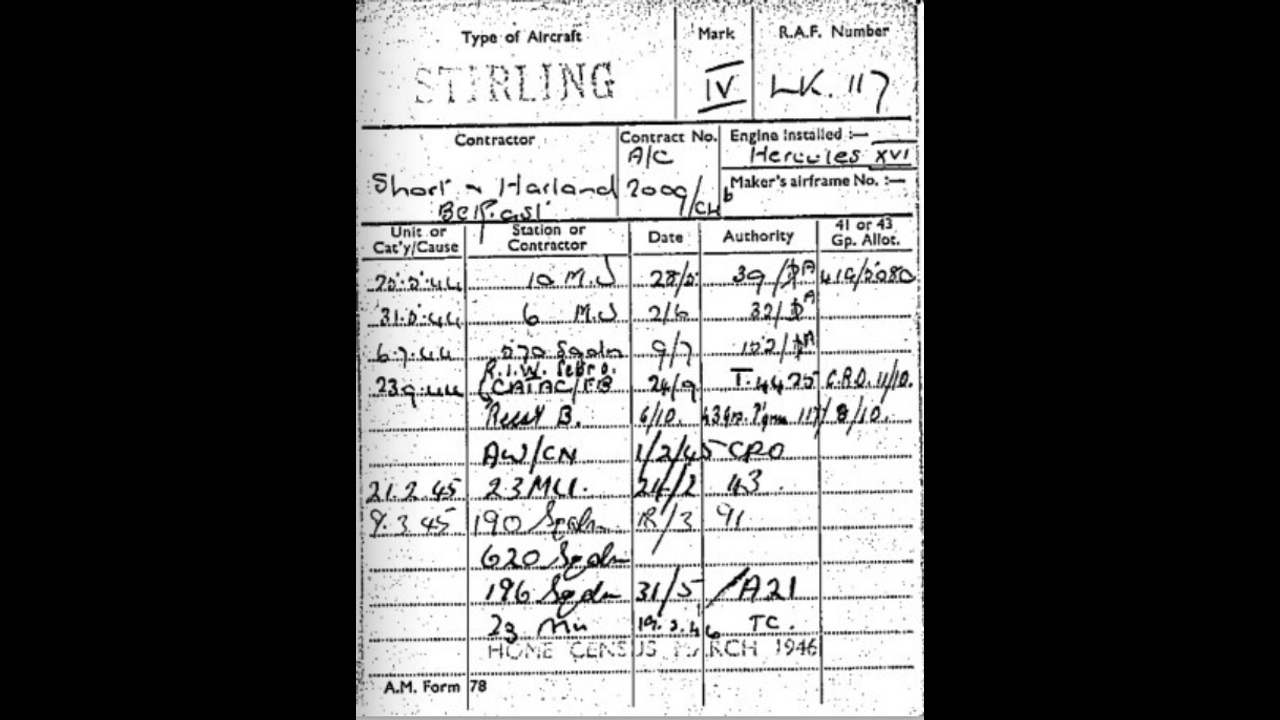 Type of Aircraft Mark R.A.F. Number
STIRLING IV LK. 117
Contractor Contract No. Engine Installed :—
A/C Hercules XVI
Short ~ Harland 2009/CH Maker's airframe No. :—
Belfast
Unit or Cat'y/Cause Station or Contractor Date Authority 41 or 43 Gp. Allot.
10 M.U 28/5 39/
31.5.44 6 M.U 2/6 32/
6.7.44 570 Sqdn 9/7
R.I.W. Sebro.
23.9.44 CATAC/FB 24/9 T.4425 C.R.D. 11/10.
B. 6/10. 8/10.
AW/CN 1/2/45 CRO
21.2.45 23 MU. 24/2 43.
9.3.45 190 Sqdn /3 91
620 Sqdn
196 Sqdn 31/5 /A21
23 Mu 19.3.46 TC.
HOME CENSUS MARCH 1946
A.M. Form 78